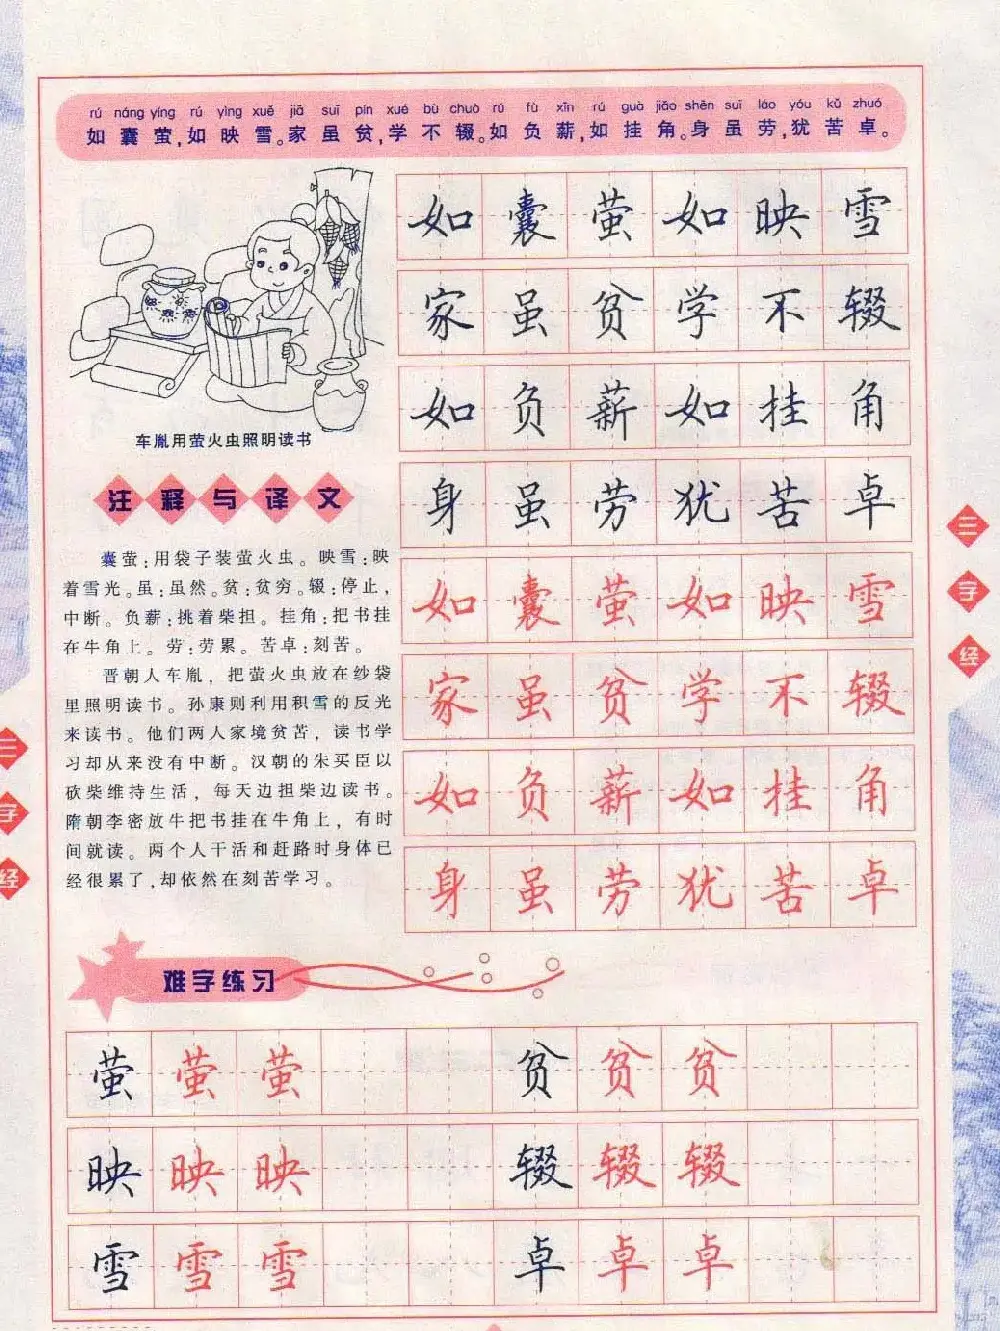 rú náng yíng rú yìng xuě jiā suī pín xué bù chuò rú fù xīn rú guà jiǎo shēn suī láo yóu kǔ zhuó
如囊萤,如映雪。家虽贫,学不辍。如负薪,如挂角。身虽劳,犹苦卓。
如囊萤如映雪
家虽贫学不辍
如负薪如挂角
身虽劳犹苦卓
如囊萤如映雪
家虽贫学不辍
如负薪如挂角
身虽劳犹苦卓
车胤用萤火虫照明读书
注释与译文
囊萤:用袋子装萤火虫。映雪:映
着雪光。虽:虽然。贫:贫穷。辍:停止,
中断。负薪:挑着柴担。挂角:把书挂
在牛角上。劳:劳累。苦卓:刻苦。
晋朝人车胤,把萤火虫放在纱袋
里照明读书。孙康则利用积雪的反光
来读书。他们两人家境贫苦,读书学
习却从来没有中断。汉朝的朱买臣以
砍柴维持生活,每天边担柴边读书。
隋朝李密放牛把书挂在牛角上,有时
间就读。两个人干活和赶路时身体已
经很累了,却依然在刻苦学习。
三字经
三字经
难字练习
萤萤萤 贫贫贫
映映映 辍辍辍
雪雪雪 卓卓卓